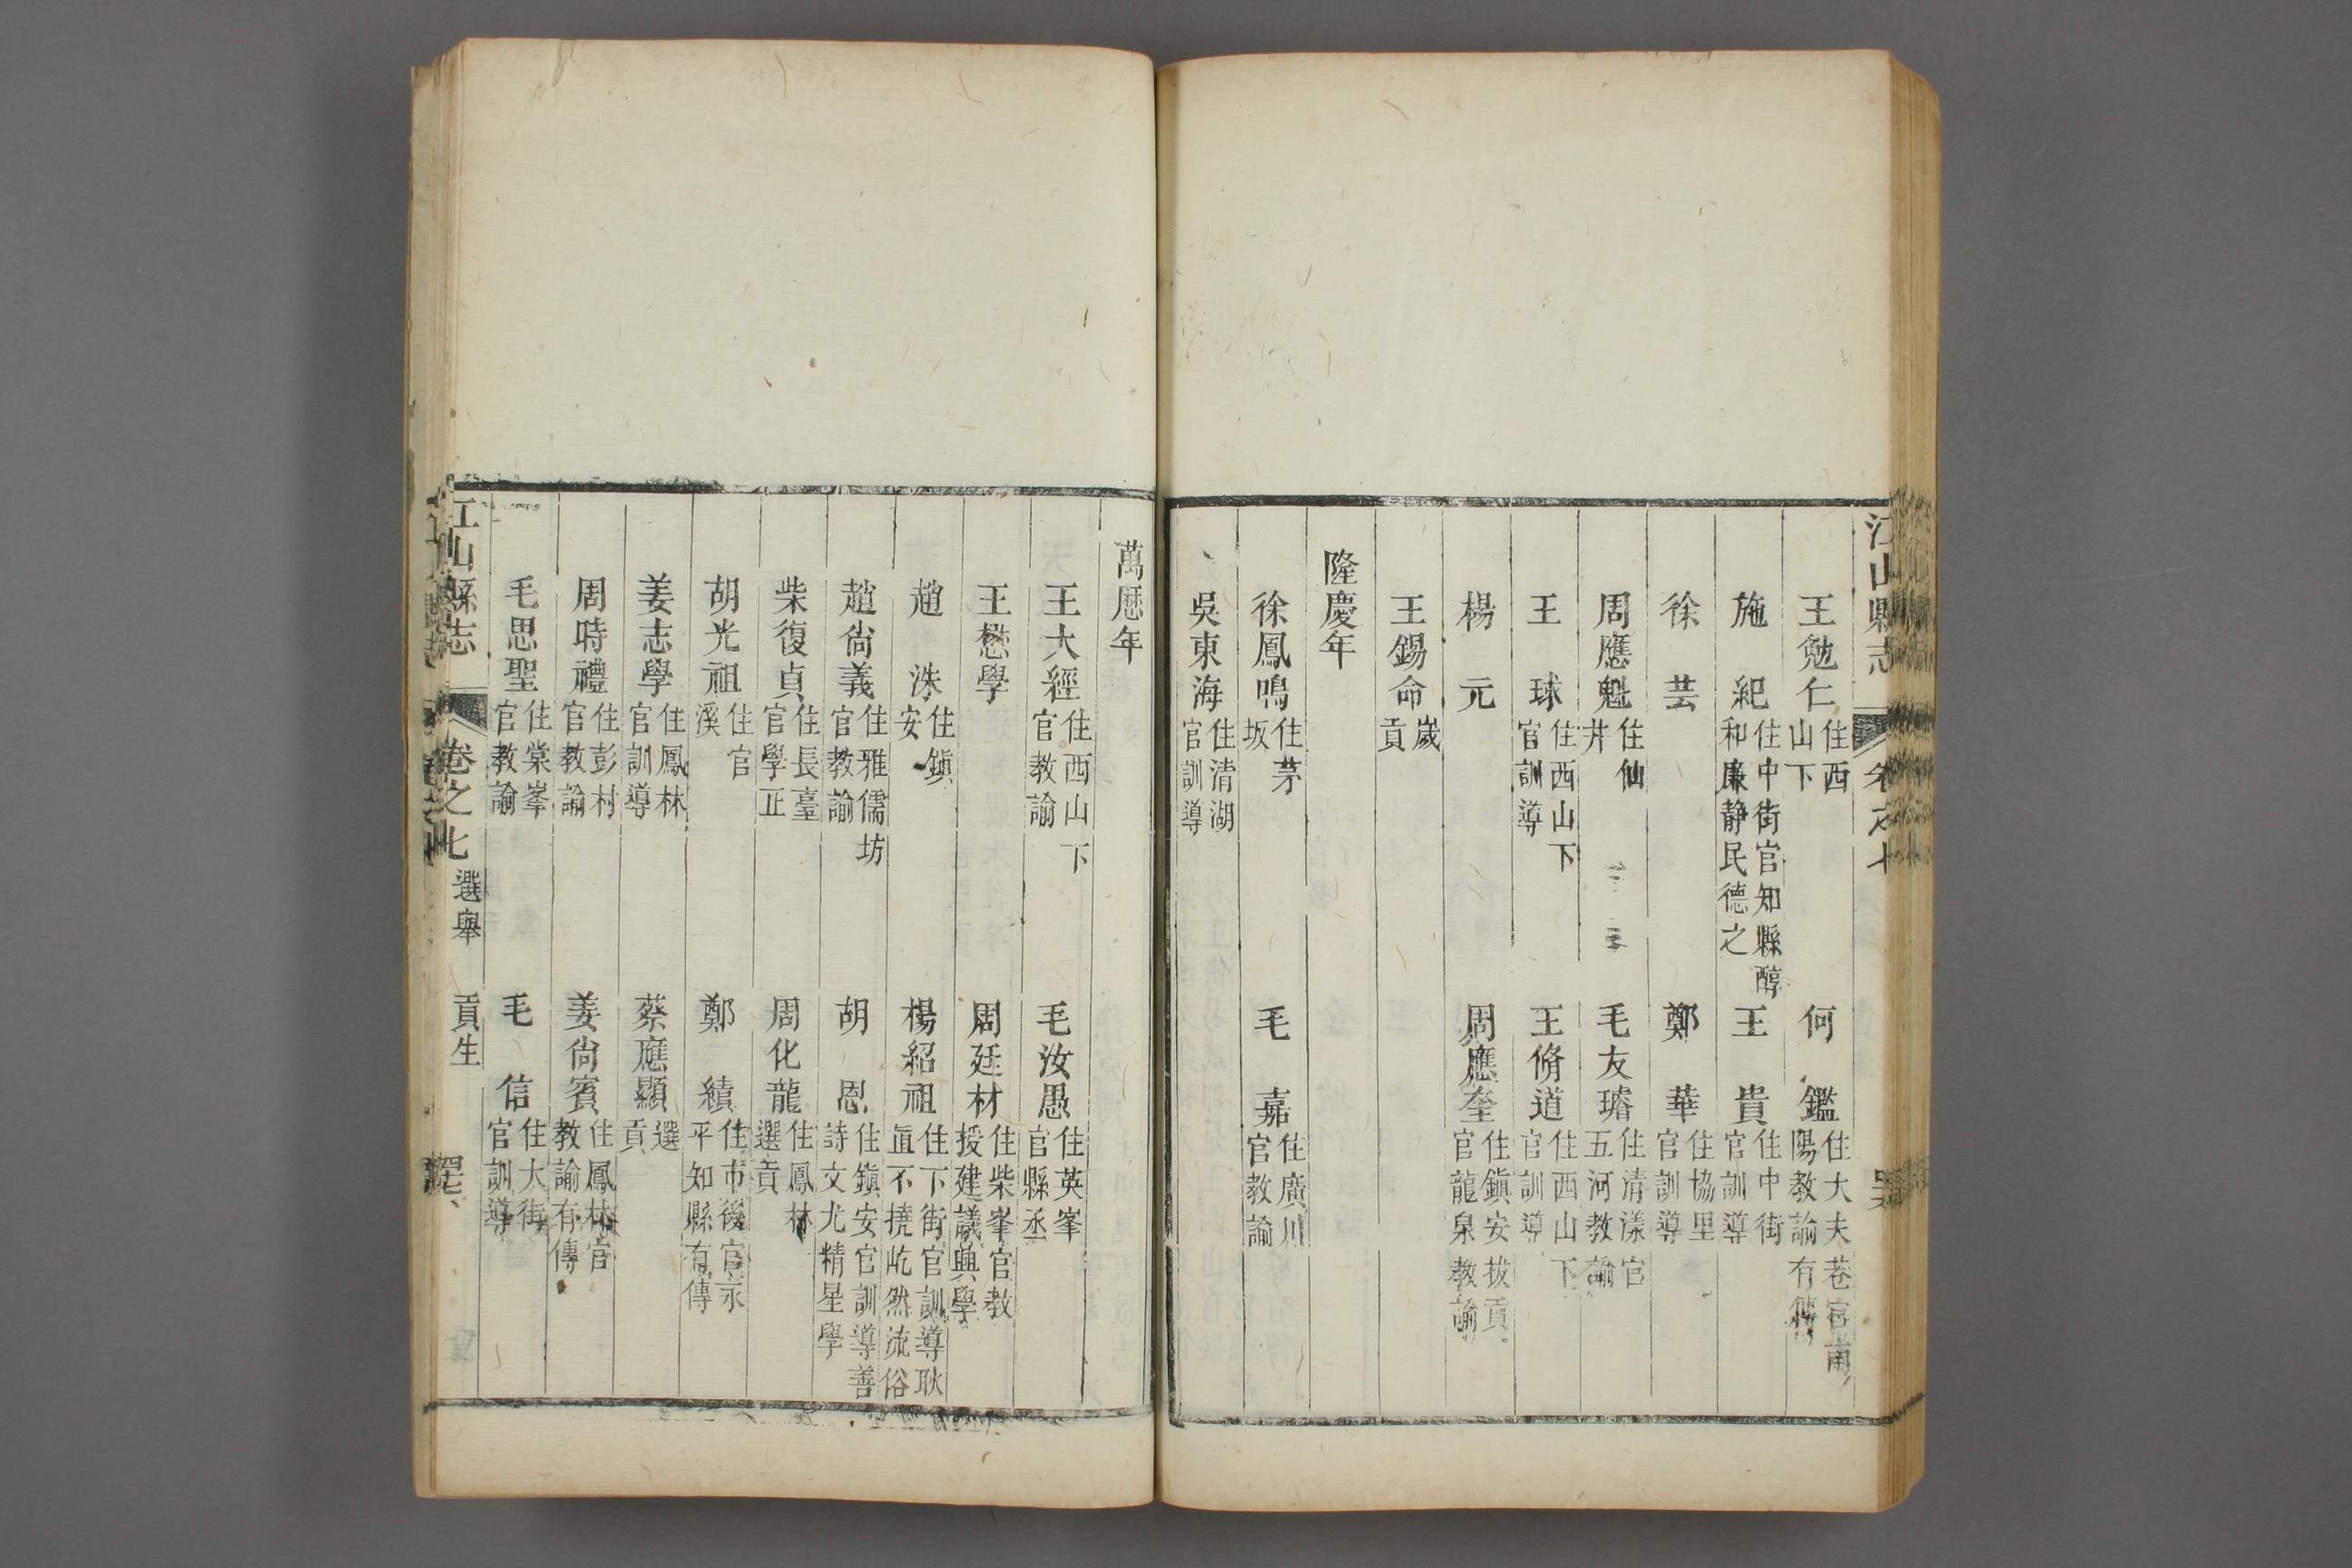 江山縣志 卷之七
王勉仁 住西山下 何鑑 住大夫巷官南陽教諭有傳
施紀 住中街官知縣醇和廉靜民德之 王貴 住中街官訓導
徐芸 鄭華 住協里官訓導
周應魁 住仙井 毛友璿 住清漾官五河教諭
王球 住西山下官訓導 王脩道 住西山下官訓導
楊元 周應奎 住鎭安拔貢官龍泉教諭
王錫命 歲貢
隆慶年
徐鳳鳴 住茅坂 毛嘉 住廣川官教諭
吳東海 住清湖官訓導
萬厯年
王大經 住西山下官教諭 毛汝愚 住英峯官縣丞
王懋學 周廷材 住柴峯官教授建議興學
趙洙 住鎭安 楊紹祖 住下街官訓導耿直不撓屹然流俗
趙尙義 住雅儒坊官教諭 胡恩 住鎭安官訓導善詩文尤精星學
柴復貞 住長臺官學正 周化龍 住鳳林選貢
胡光祖 住官溪 鄭績 住市後官永平知縣有傳
姜志學 住鳳林官訓導 蔡應顯 選貢
周時禮 住彭村官教諭 姜尙賓 住鳳林官教諭有傳
毛思聖 住棠峯官教諭 毛信 住大街官訓導
江山縣志 卷之七 選舉 貢生